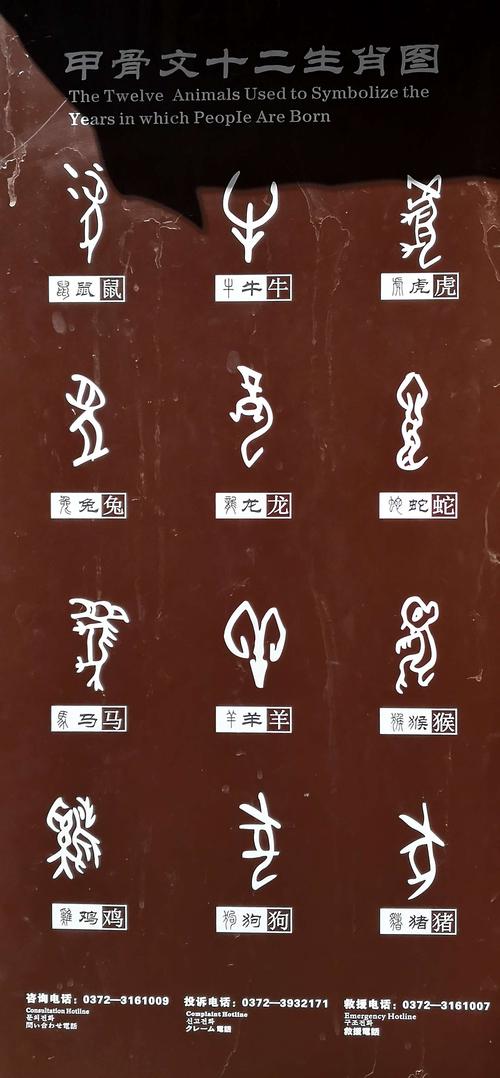 甲骨文十二生肖图
The Twelve Animals Used to Symbolize the
Years in which People Are Born
鼠 鼠 鼠
牛 牛 牛
虎 虎 虎
兔 兔 兔
龍 龙 龙
蛇 蛇 蛇
馬 马 马
羊 羊 羊
猴 猴 猴
雞 鸡 鸡
狗 狗 狗
豬 猪 猪
咨询电话：0372—3161009
Consultation Hotline
문의전화
問い合わせ電話
投诉电话：0372—3932171
Complaint Hotline
신고전화
クレーム電話
救援电话：0372—3161007
Emergency Hotline
구조전화
救援電話